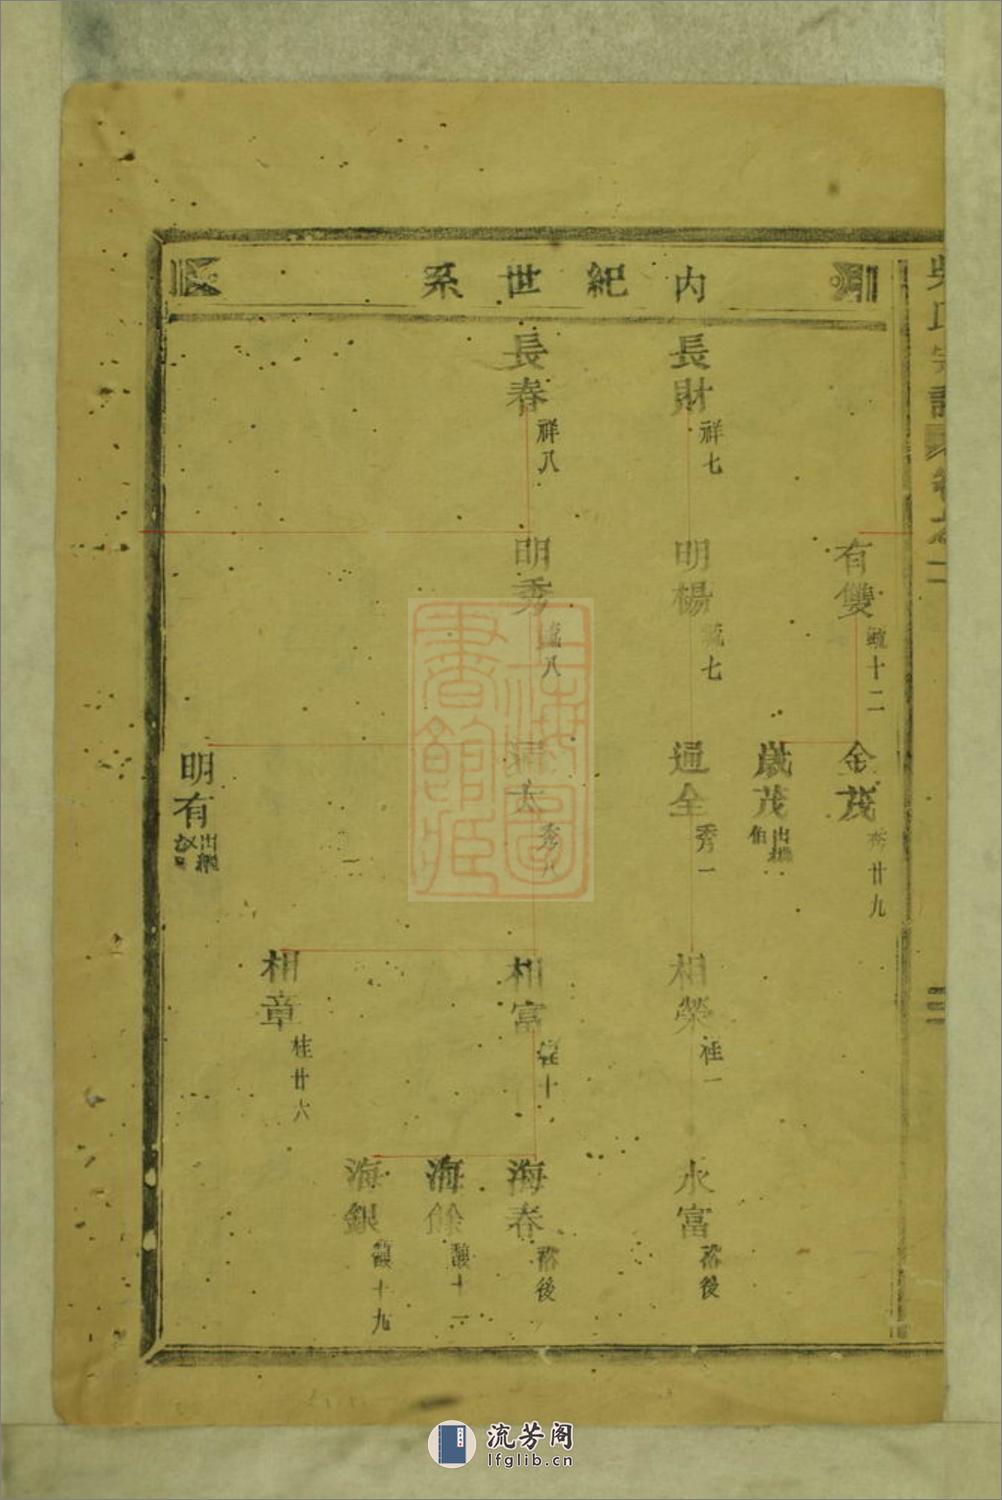 吳氏宗譜 卷之二
內紀世系
有雙 毓十二
金茂 秀廿九
歲茂 出繼伯
長財 祥七
明楊 毓七
通全 秀一
相榮 桂一
永富 裕後
長春 祥八
明秀 毓八
太 秀八
相富 桂十
海春 裕後
海餘 馥十一
海銀 馥十九
相章 桂廿六
明有 出繼
上海圖書館藏
流芳阁
lfglib.cn